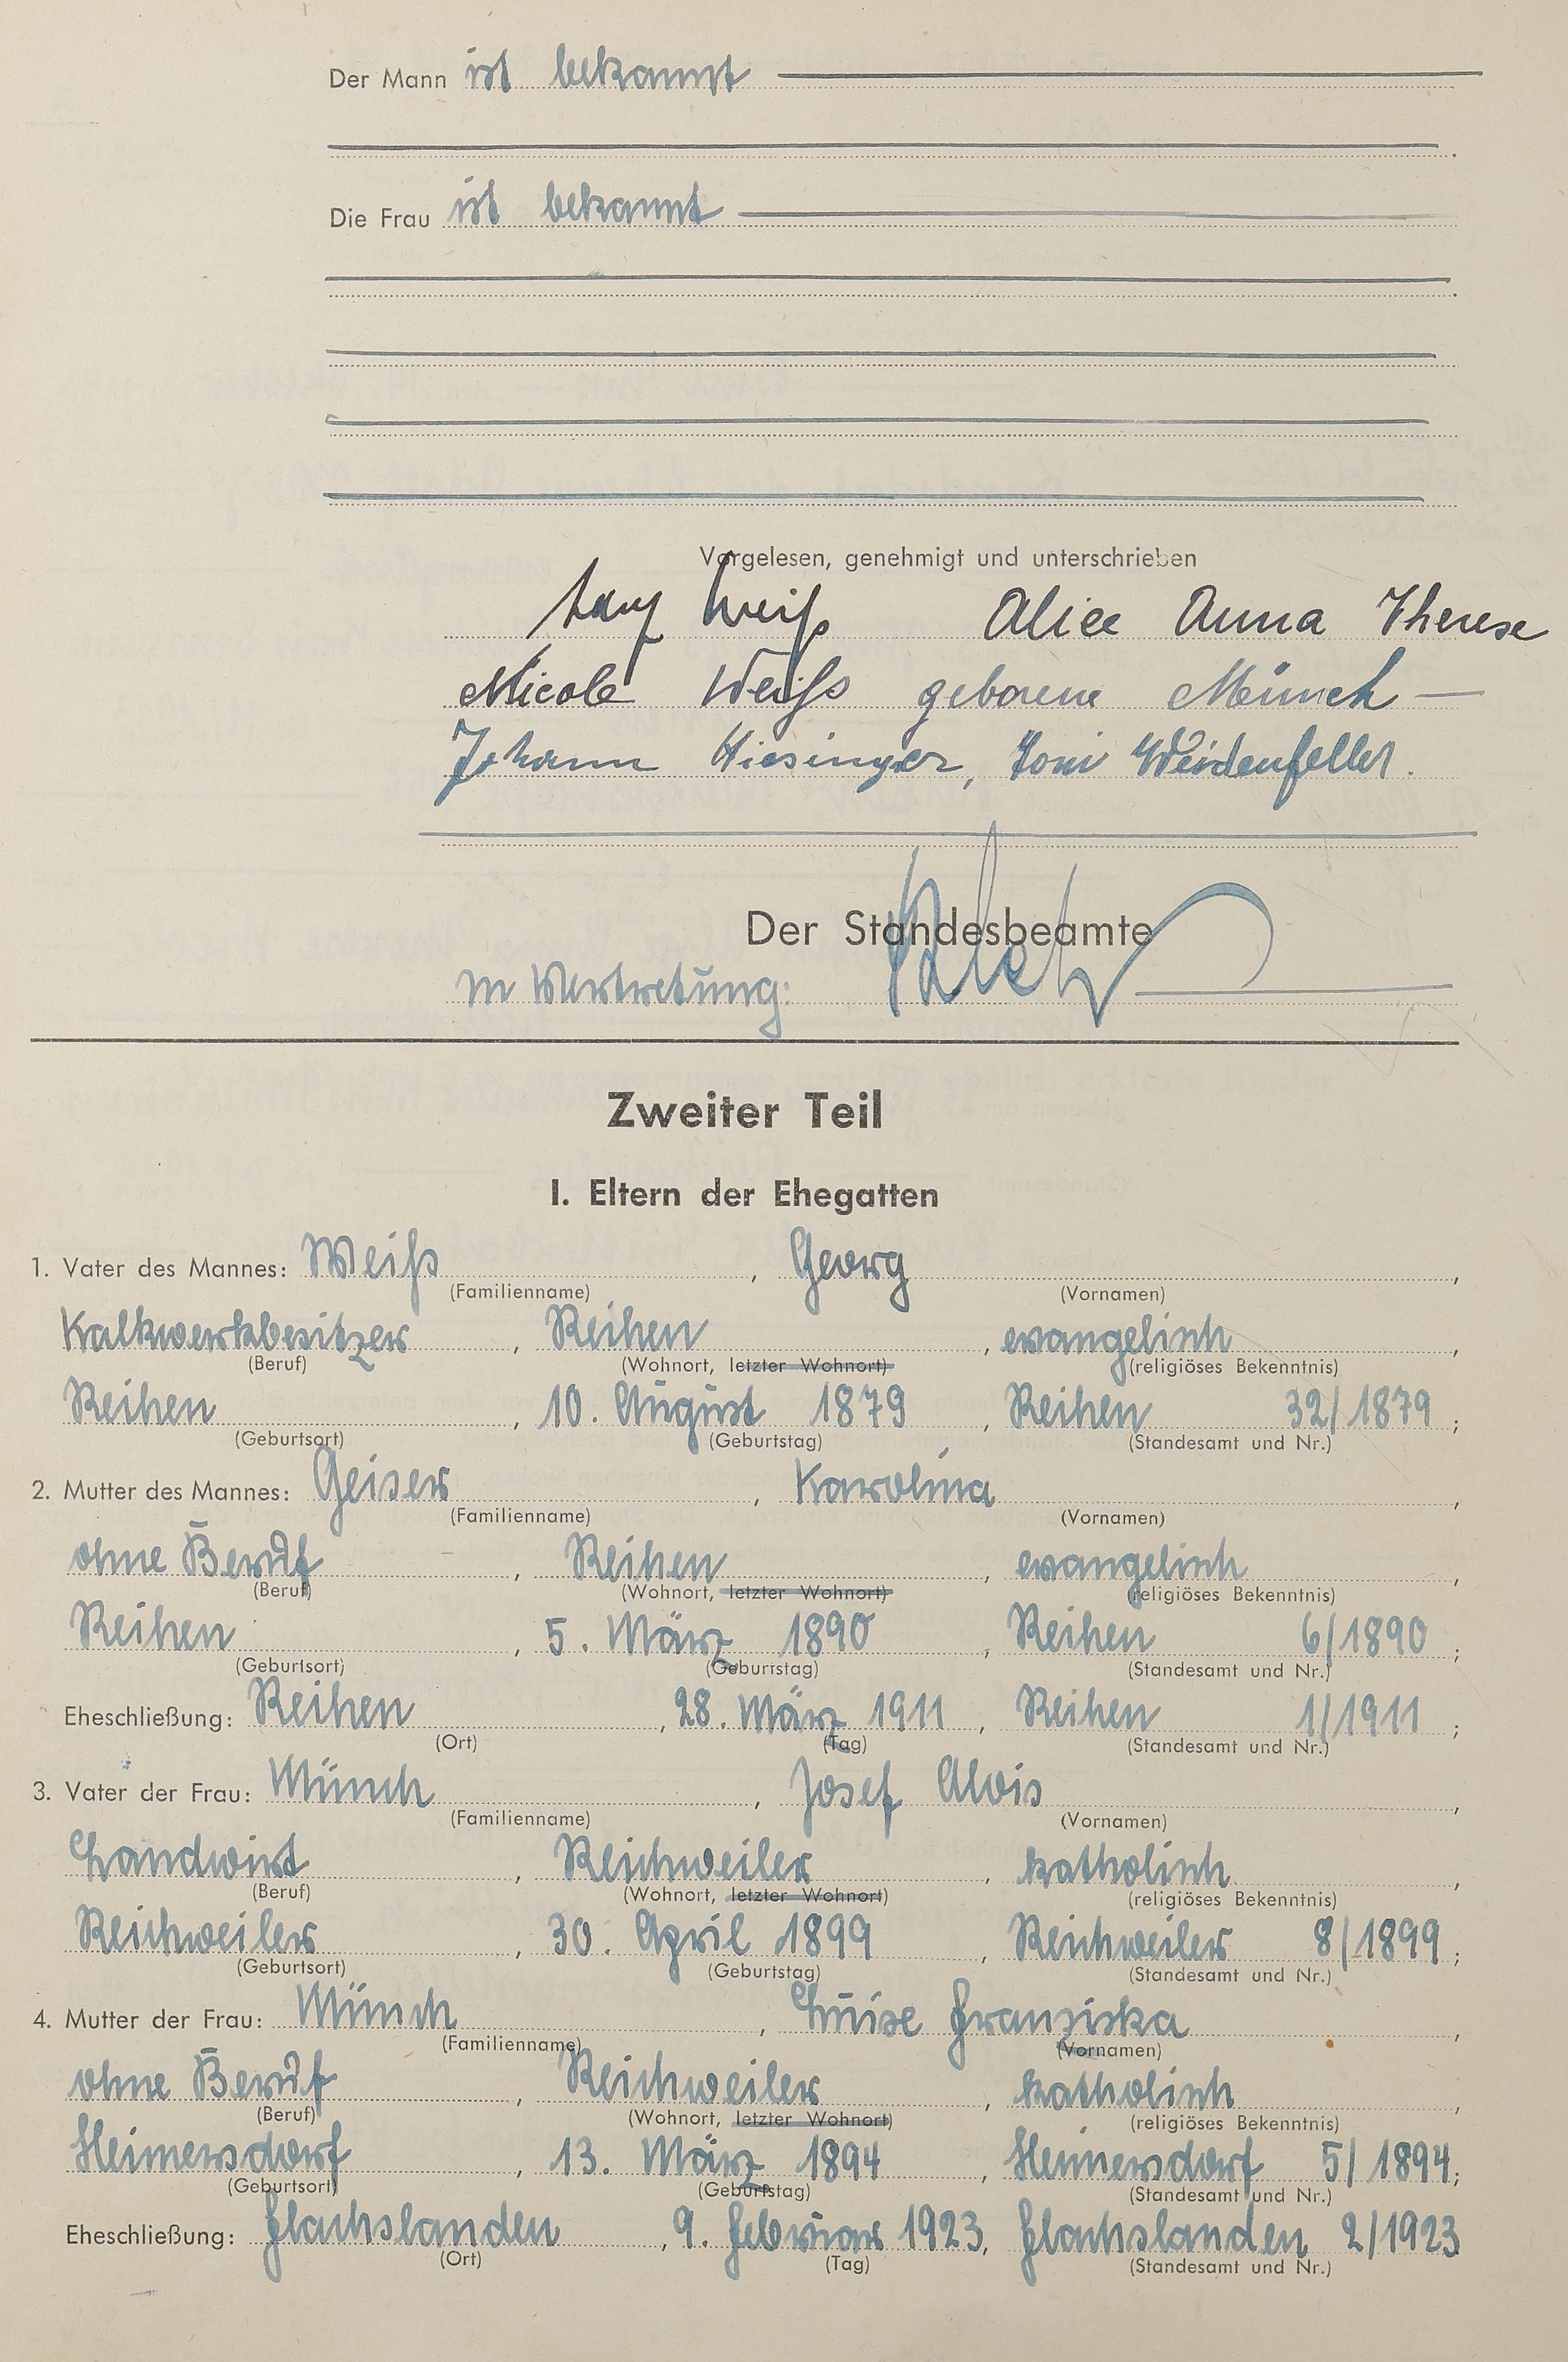 Der Mann ist bekannt
Die Frau ist bekannt
Vorgelesen, genehmigt und unterschrieben
Weiß Alice Anna Therese
Nicole Weiß geborene Münch —
Johann Hiesinger, Toni Weidenfeller.
Der Standesbeamte
In Vertretung:
Zweiter Teil
I. Eltern der Ehegatten
1. Vater des Mannes: Weiß, Georg,
(Familienname) (Vornamen)
Kalkwerkbesitzer, Reihen, evangelisch,
(Beruf) (Wohnort, letzter Wohnort) (religiöses Bekenntnis)
Reihen, 10. August 1879, Reihen 32/1879;
(Geburtsort) (Geburtstag) (Standesamt und Nr.)
2. Mutter des Mannes: Geiser, Karolina,
(Familienname) (Vornamen)
ohne Beruf, Reihen, evangelisch,
(Beruf) (Wohnort, letzter Wohnort) (religiöses Bekenntnis)
Reihen, 5. März 1890, Reihen 6/1890;
(Geburtsort) (Geburtstag) (Standesamt und Nr.)
Eheschließung: Reihen, 28. März 1911, Reihen 1/1911;
(Ort) (Tag) (Standesamt und Nr.)
3. Vater der Frau: Münch, Josef Alois,
(Familienname) (Vornamen)
Landwirt, Reichweiler, katholisch,
(Beruf) (Wohnort, letzter Wohnort) (religiöses Bekenntnis)
Reichweiler, 30. April 1899, Reichweiler 8/1899;
(Geburtsort) (Geburtstag) (Standesamt und Nr.)
4. Mutter der Frau: Münch, Luise Franziska,
(Familienname) (Vornamen)
ohne Beruf, Reichweiler, katholisch,
(Beruf) (Wohnort, letzter Wohnort) (religiöses Bekenntnis)
Heimersdorf, 13. März 1894, Heimersdorf 5/1894;
(Geburtsort) (Geburtstag) (Standesamt und Nr.)
Eheschließung: Flachslanden, 9. Februar 1923, Flachslanden 2/1923
(Ort) (Tag) (Standesamt und Nr.)